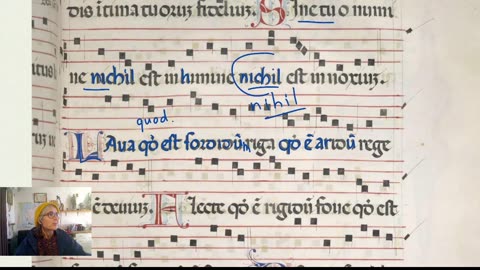 dis ītima tuoruꝫ fideliuꝫ. Sine tuo numi
ne nichil est in homine nichil est in noxiuꝫ.
nihil
quod.
Laua qđ est sordidū riga qđ ē aridū rege
ē deuiuꝫ. Flecte qđ ē rigidū foue qđ est